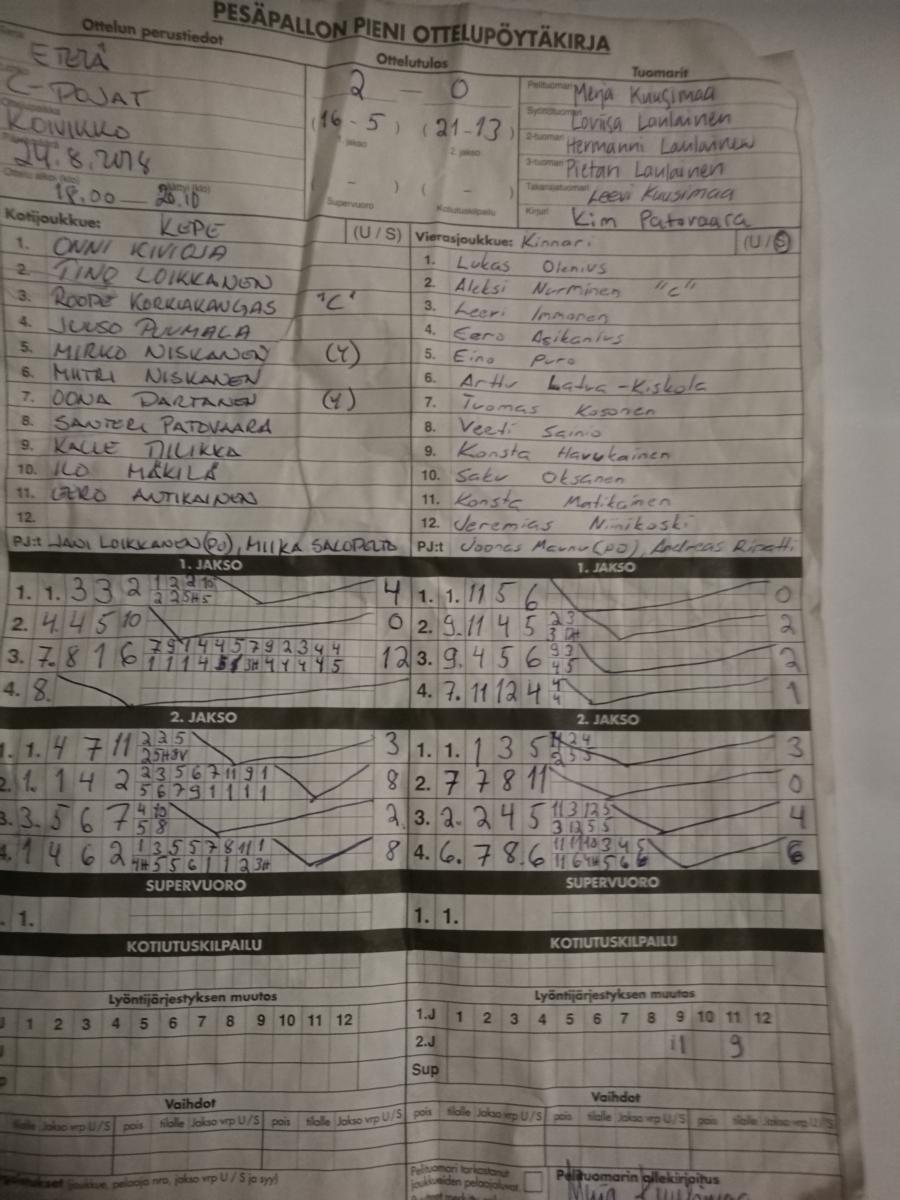 PESÄPALLON PIENI OTTELUPÖYTÄKIRJA
Ottelun perustiedot
Ottelutulos
Tuomarit
ETELÄ
C-POJAT
KOIVIKKO
24.8.2018
18.00 — 20.10
2 – 0
(16 - 5) (21 - 13)
1. jakso 2. jakso
( - ) ( - )
Supervuoro Kotiutuskilpailu
Pelituomari Merja Kuusimaa
Syöttötuomari Loviisa Laulainen
2-tuomari Hermanni Laulainen
3-tuomari Pietari Laulainen
Takarajatuomari Leevi Kuusimaa
Kirjuri Kim Patovaara
Kotijoukkue: KOPE (U / S)
1. ONNI KIVIOJA
2. TINO LOIKKANEN
3. ROOPE KORKIAKANGAS "C"
4. JUUSO PUUMALA
5. MIRKO NISKANEN (Y)
6. MITRI NISKANEN
7. OONA PARTANEN (Y)
8. SANTERI PATOVAARA
9. KALLE TILIKKA
10. ILO MÄKILÄ
11. EERO ANTIKAINEN
12.
PJ:t JANI LOIKKANEN (PO), MIIKA SALOPELTO
Vierasjoukkue: Kinnari (U / S)
1. Lukas Olenius
2. Aleksi Nurminen "C"
3. Leevi Immonen
4. Eero Asikanius
5. Eino Puro
6. Arttu Latva-Kiskola
7. Tuomas Kosonen
8. Veeti Sainio
9. Konsta Havukainen
10. Saku Oksanen
11. Konsta Matikainen
12. Jeremias Niinikoski
PJ:t Joonas Maunu (PO), Andreas Ripatti
1. JAKSO
1. 1. 3 3 2 4
2. 4. 4 5 10 0
3. 7. 8 1 6 7 9 1 4 4 5 7 9 2 3 4 4 12
4. 8.
1. JAKSO
1. 1. 11 5 6 0
2. 9. 11 4 5 2
3. 9. 4 5 6 9 3 2
4 5
4. 7. 11 12 4 4 1
4
2. JAKSO
1. 1. 4 7 11 2 2 5 3
2. 1. 1 4 2 2 3 5 6 7 11 9 1 8
5 6 7 9 1 1 1 1
3. 3. 5 6 7 4 10 2
5 8
4. 1 4 6 2 1 3 5 5 7 8 11 1 8
2. JAKSO
1. 1. 1 3 5 3
2. 7 7 8 11 0
3. 2. 2 4 5 11 3 12 5 4
3 12 5 5
4. 6. 7 8. 6 6
SUPERVUORO
1.
SUPERVUORO
1. 1.
KOTIUTUSKILPAILU
KOTIUTUSKILPAILU
Lyöntijärjestyksen muutos
1 2 3 4 5 6 7 8 9 10 11 12
Lyöntijärjestyksen muutos
1.J 1 2 3 4 5 6 7 8 9 10 11 12
2.J 11 9
Sup
Vaihdot
tilalle Jakso vrp U / S pois tilalle Jakso vrp U / S pois tilalle Jakso vrp U / S
Vaihdot
pois tilalle Jakso vrp U / S pois tilalle Jakso vrp U / S pois tilalle Jakso vrp U / S
(joukkue, pelaaja nro, jakso vrp U / S ja syy)
Pelituomari tarkastanut
joukkueiden pelaajaluvat
Pelituomarin allekirjoitus